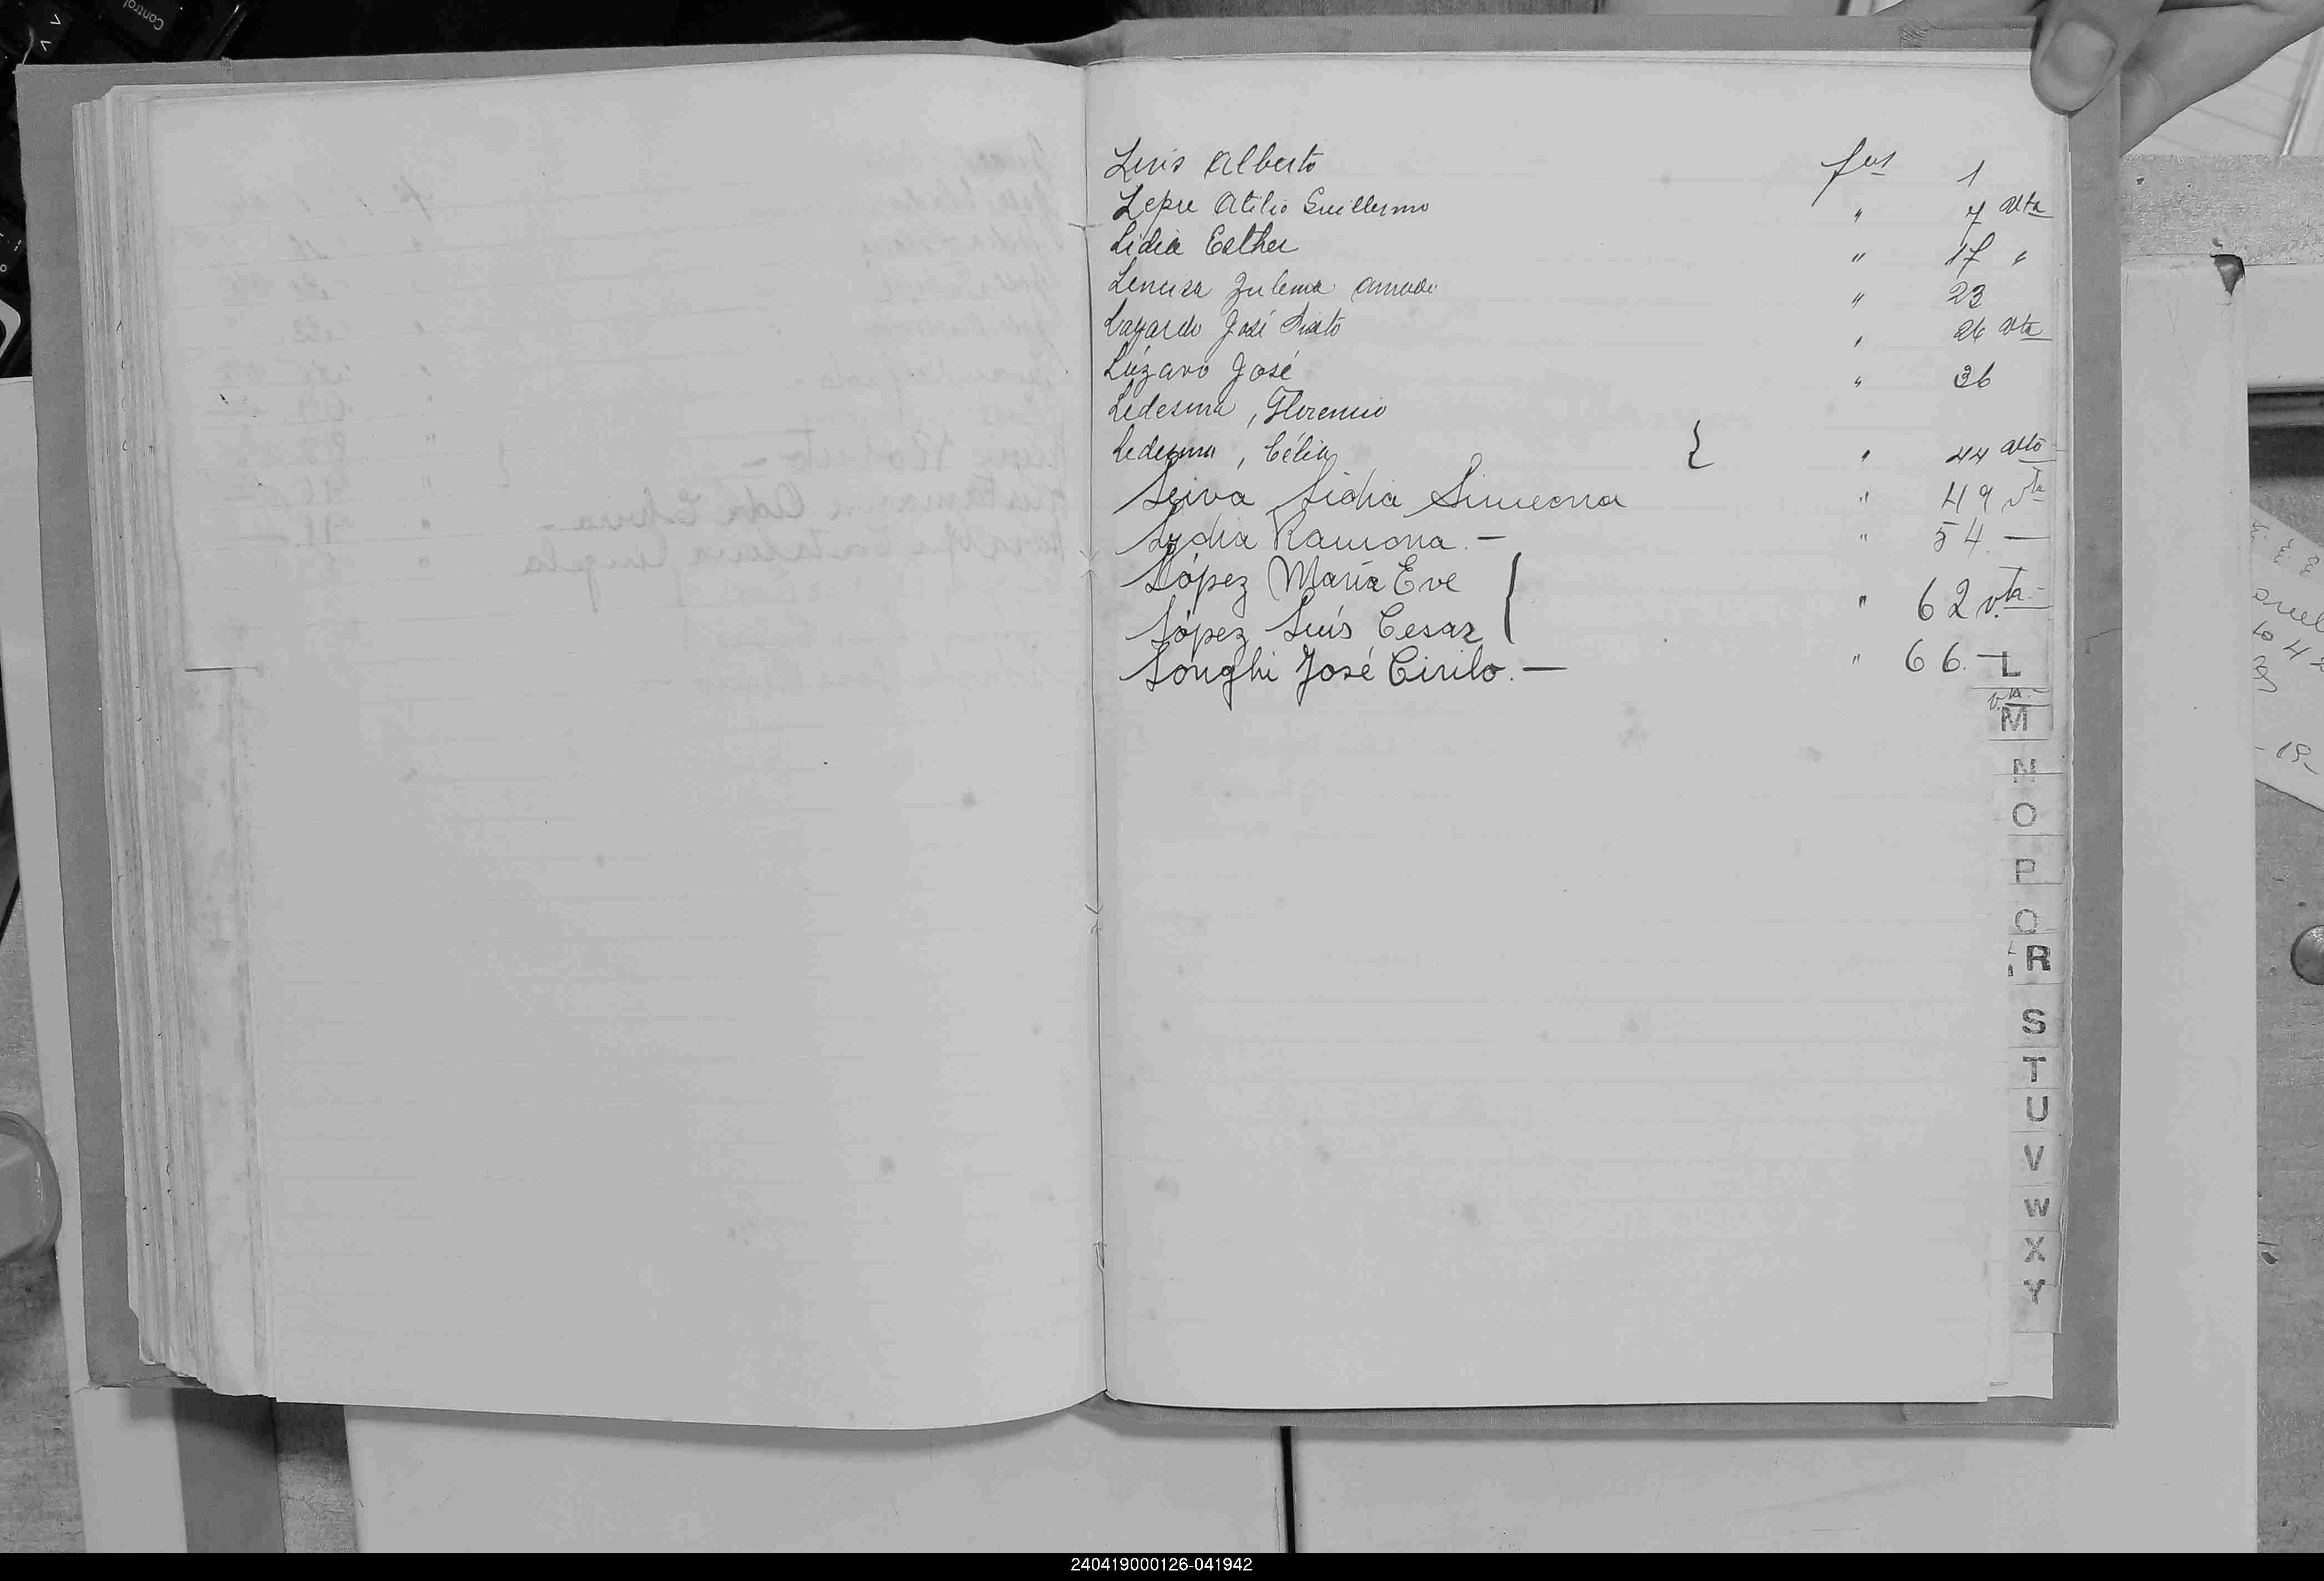 Luis Alberto fus 1
Lepre Atilio Guillermo " 7 vlta
Lidia Esther " 17 "
Zulema " 23
José " 26 vta
Lázaro José " 36
Ledesma, Florencio
Ledesma, Célia { " 44 vlto
Leiva Lidia Simeona " 49 vta
Lydia Ramona. — " 54. —
López María Eve
López Luís Cesar } " 62 vta.—
Longhi José Cirilo. — " 66. —
vta.—
L
M
N
O
P
Q
R
S
T
U
V
W
X
Y
Control
240419000126-041942